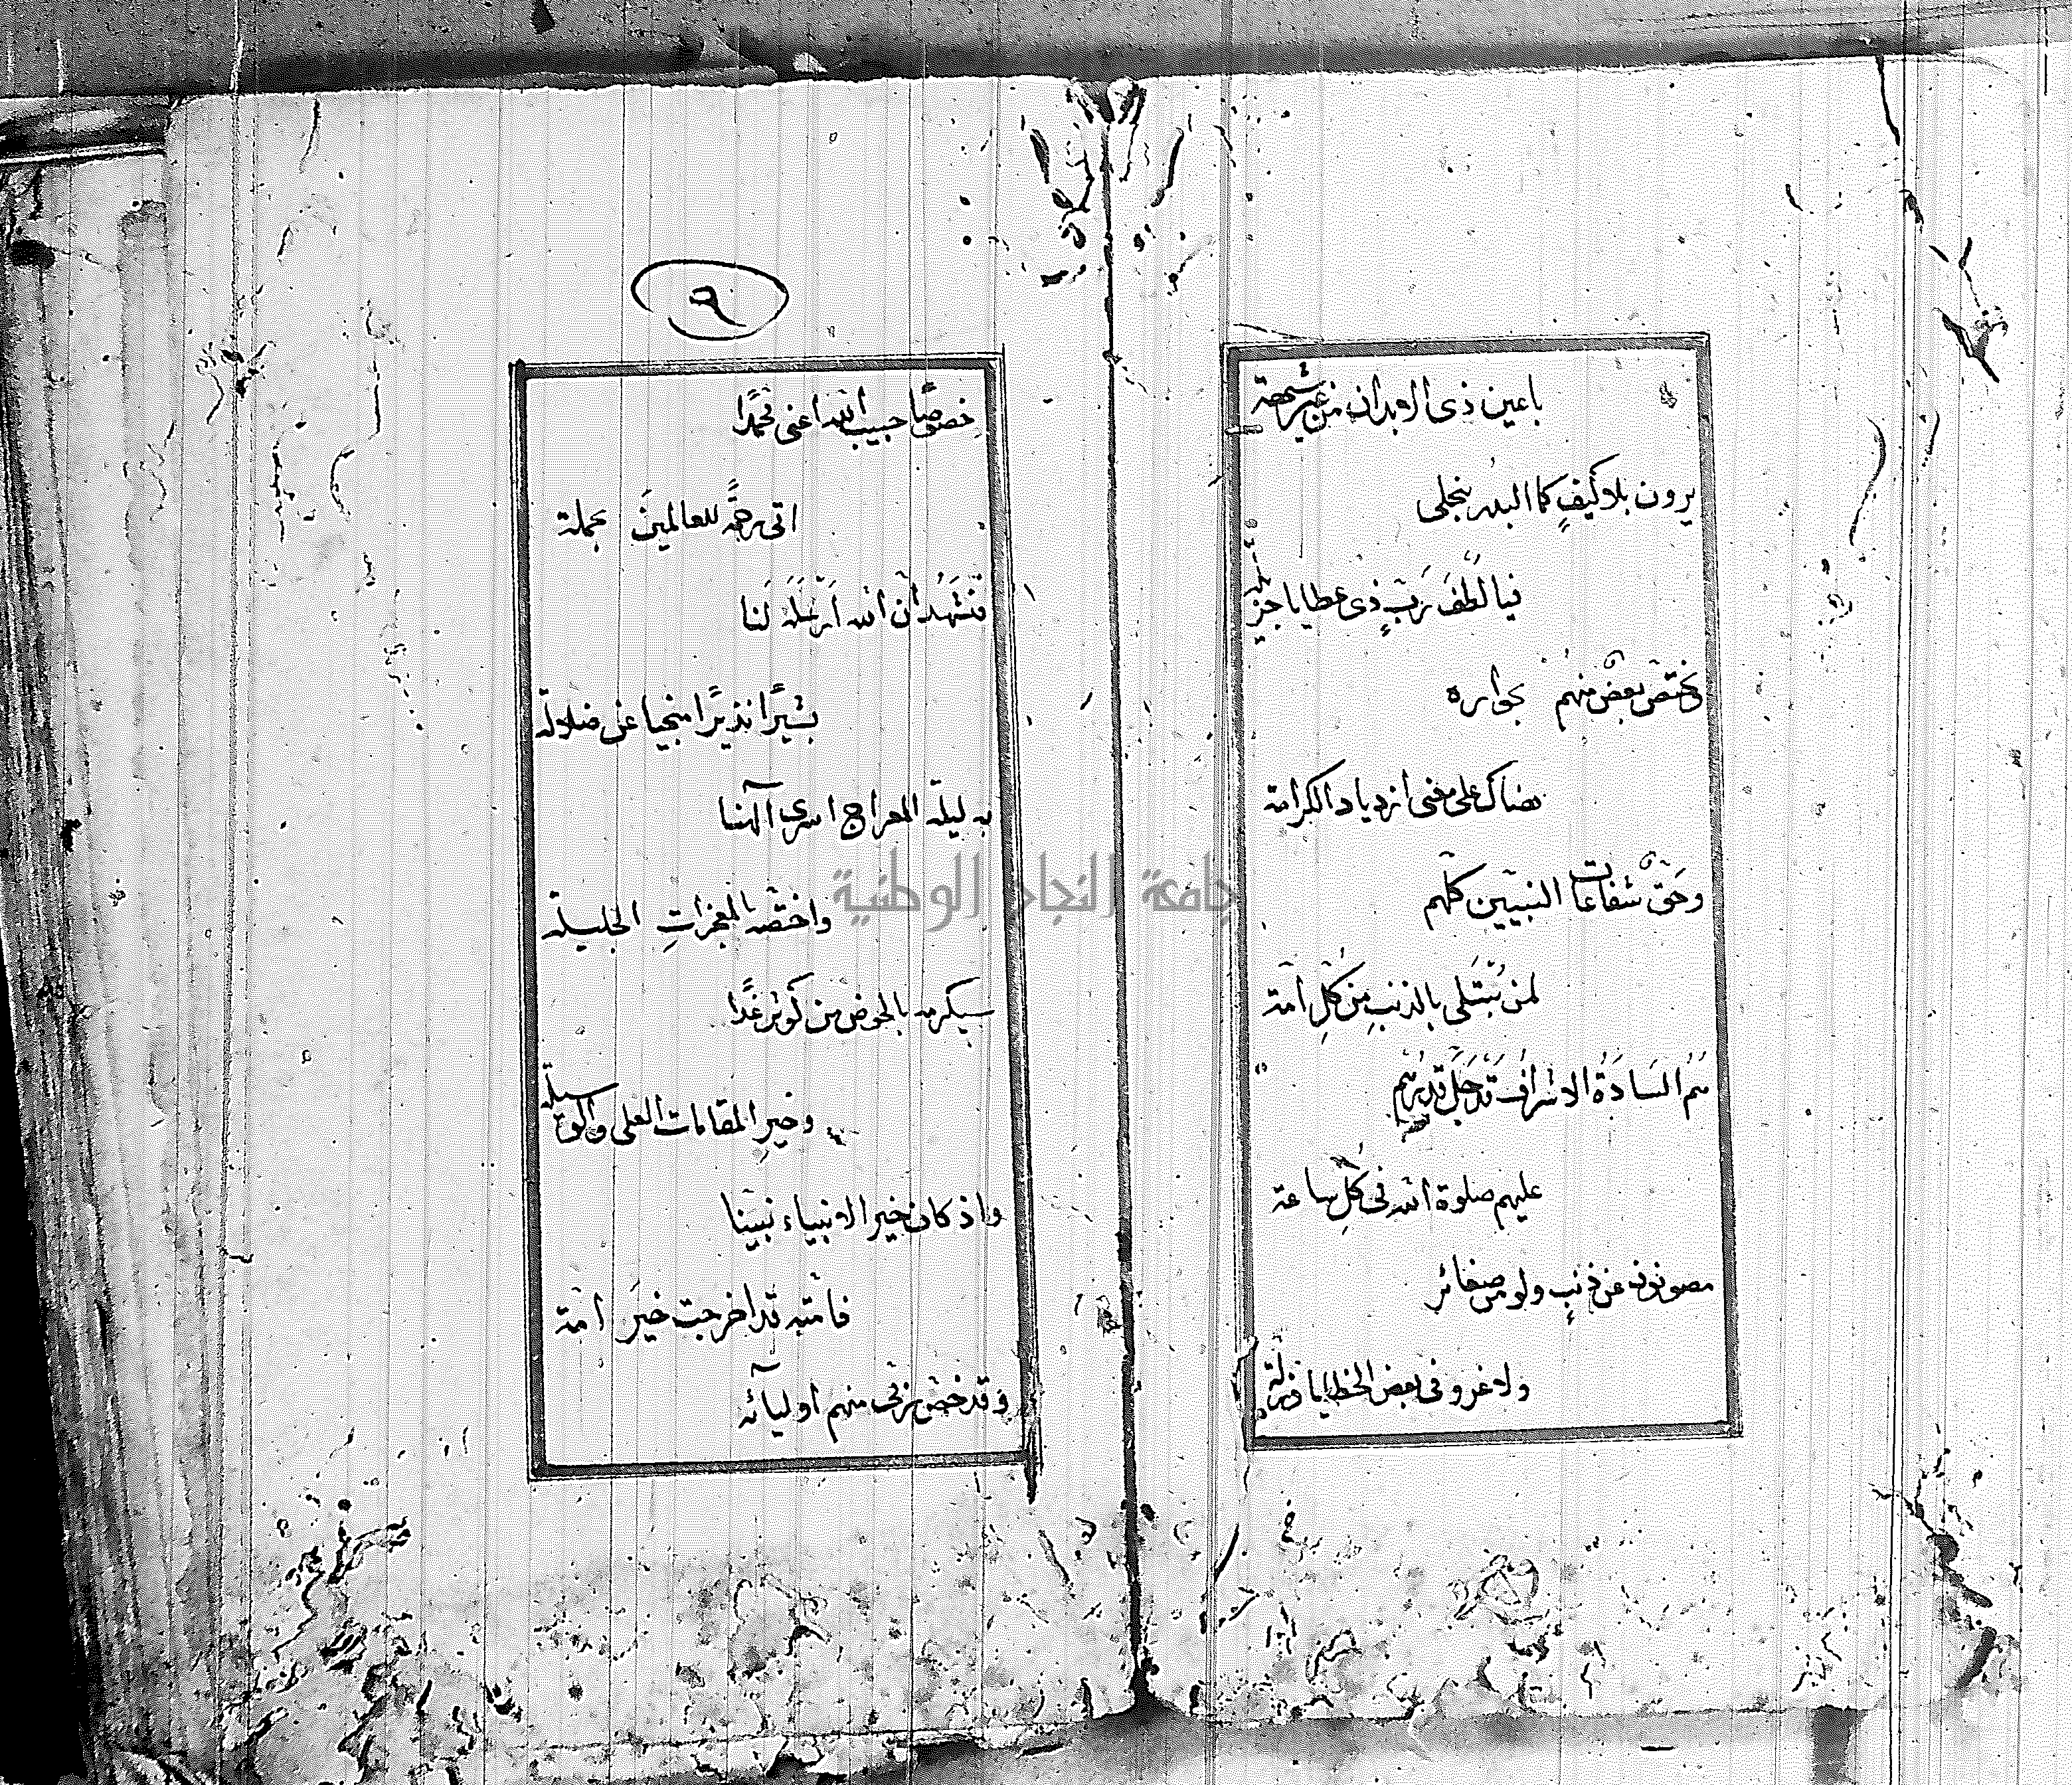 باعين ذى الابدان من غير شبهة
يرون بلا كيفٍ كما البدر ينجلى
فيا لُطفَ رَبٍّ ذى عطايا جزيلة
ويختصّ بعضٌ منهم بجواره
هناك على معنى ازدياد الكرامة
وحَقّ شفاعات النبيين كلهم
لمن يُبْتَلى بالذنبِ من كُلّ امّة
هُم السَادَةُ الاشرافُ قد جَلّ قدرهم
عليهم صلوة الله فى كُلِّ ساعة
مصونون عن ذنبٍ ولو من صغائر
ولا غرو فى بعض الخطايا وزلّة
٩
خصوصًا حبيب الله اعنى محمّدًا
اتى رحمةً للعالمينَ بجملة
فنَشهَدُ أن الله اَرْسَلَه لَنا
بشيرًا نذيرًا منجيا عن ضلالة
به ليلة المعراج اسرى آلهنا
واختصّه بالمعجزاتِ الجليلة
سيكرمه بالحوض من كوثر غدًا
وخيرِ المقامات العلى والوسيلة
واذ كان خير الانبياء نبيّنا
فامّته قد اخرجت خيرَ امّة
وقد خصّ ربّى منهم اوليآئه
جامعة النجاح الوطنية